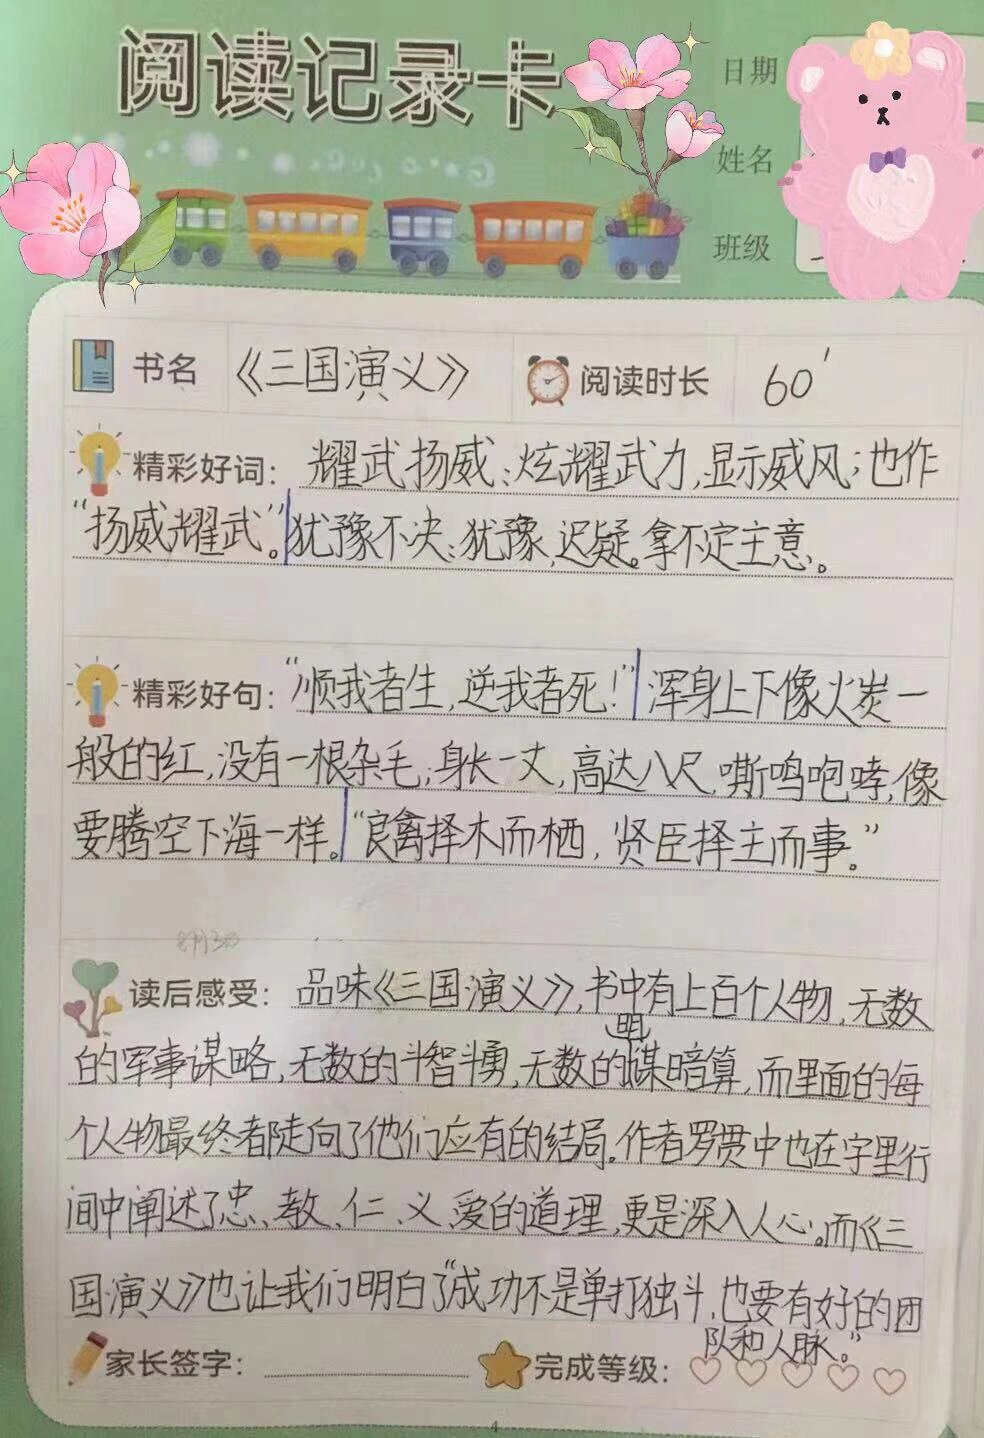 阅读记录卡
日期
姓名
班级
书名 《三国演义》 阅读时长 60'
精彩好词: 耀武扬威:炫耀武力,显示威风;也作
“扬威耀武”。犹豫不决:犹豫,迟疑。拿不定主意。
精彩好句: “顺我者生,逆我者死!” 浑身上下像火炭一
般的红,没有一根杂毛;身长一丈,高达八尺,嘶鸣咆哮,像
要腾空下海一样。“良禽择木而栖,贤臣择主而事。”
8月30
读后感受: 品味《三国演义》,书中有上百个人物,无数
的军事谋略,无数的斗智斗勇,无数的明谋暗算,而里面的每
个人物最终都走向了他们应有的结局。作者罗贯中也在字里行
间中阐述了忠、教、仁、义、爱的道理,更是深入人心。而《三
国演义》也让我们明白了“成功不是单打独斗,也要有好的团
队和人脉。”
家长签字: 完成等级:
4